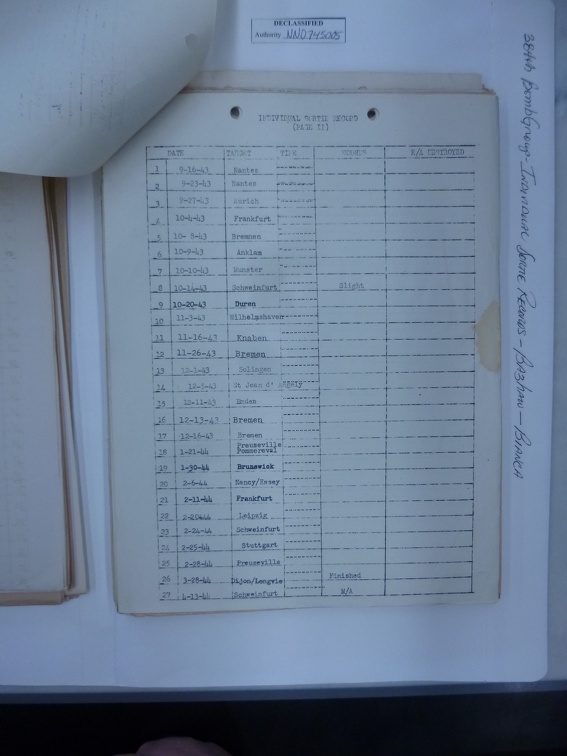 DECLASSIFIED
Authority NND 745005
384th Bomb Group - Individual Sortie Records -
INDIVIDUAL SORTIE RECORD
(PAGE II)
DATE TARGET TIME WOUNDS E/A
1 9-16-43 Nantes
2 9-23-43 Nantes
3 9-27-43
4 10-4-43 Frankfurt
5 10- 8-43 Bremen
6 10-9-43 Anklam
7 10-10-43 Munster
8 10-14-43 Schweinfurt Slight
9 10-20-43 Duren
10 11-3-43 Wilhelmshaven
11 11-16-43 Knaben
12 11-26-43 Bremen
13 12-1-43 Solingen
14 12-5-43 St Jean d' Angely
15 12-11-43 Emden
16 12-13-43 Bremen
17 12-16-43 Bremen
Preuseville
18 1-21-44 Pommereval
19 1-30-44 Brunswick
20 2-6-44 Nancy/Essey
21 2-11-44 Frankfurt
22 2-20-44 Leipzig
23 2-24-44 Schweinfurt
24 2-25-44 Stuttgart
25 2-28-44 Preuseville
26 3-28-44 Dijon/Longvic Finished
27 4-13-44 Schweinfurt M/A